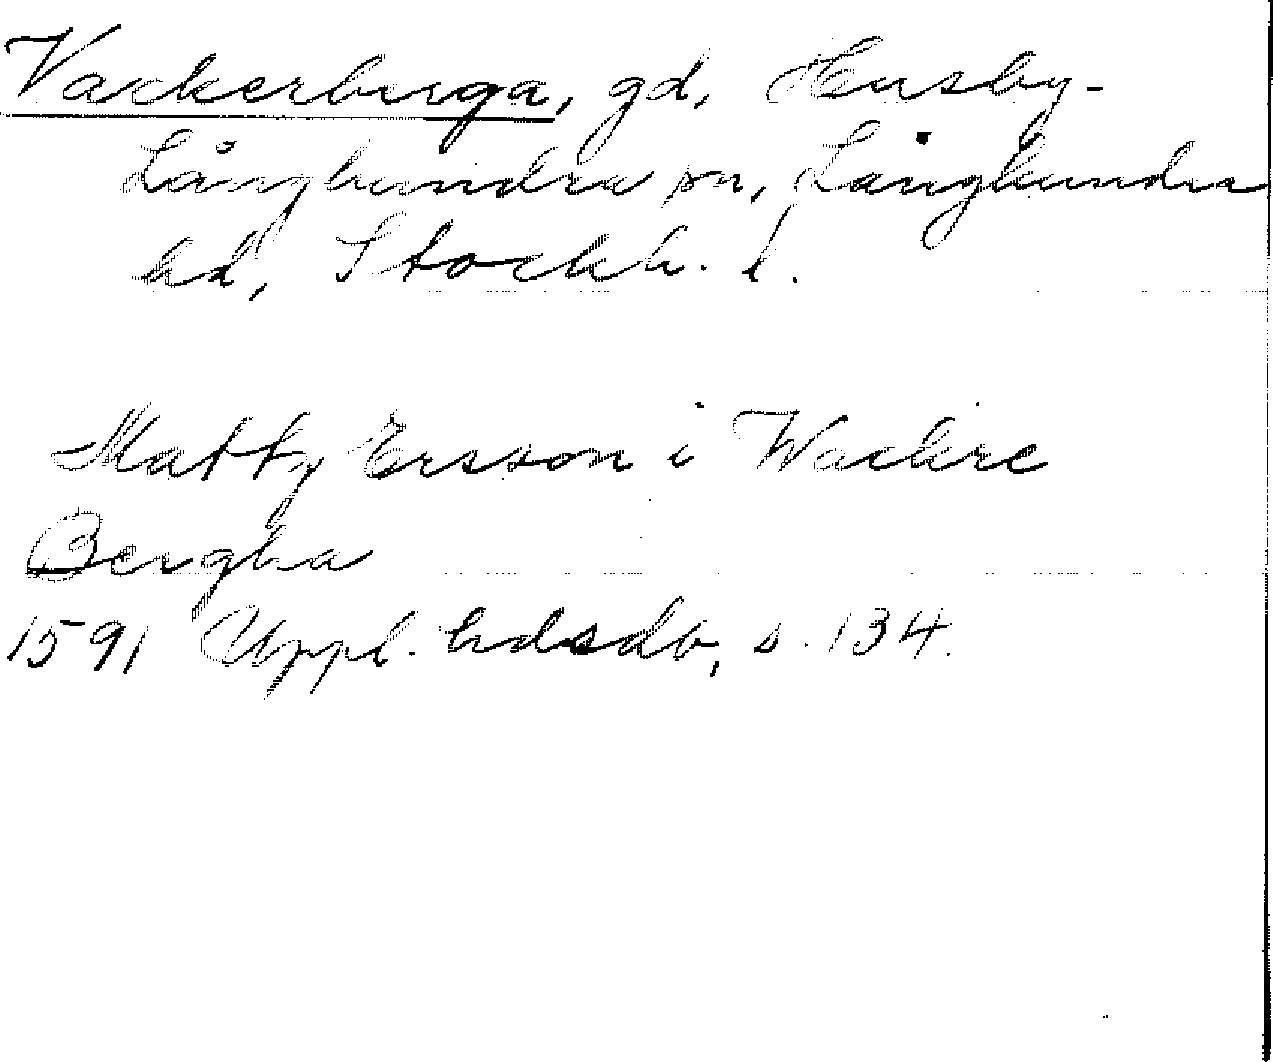 Vackerberga, gd, Husby-
Långhundra sn, Långhundra
hd, Stockh. l.
Matty Ersson i Wackre
Bergha
1591 Uppl. hdsdb, s. 134.